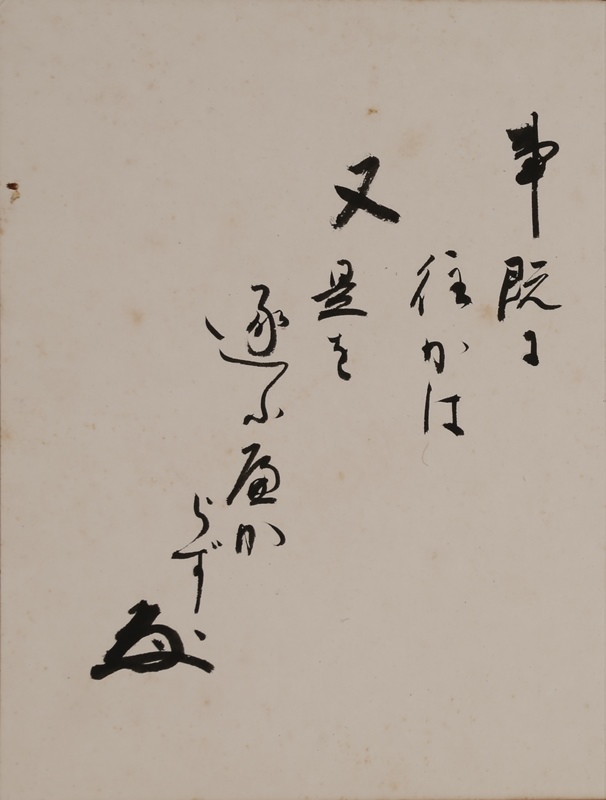 事既に
往かは
又是を
逐ふ か
らず